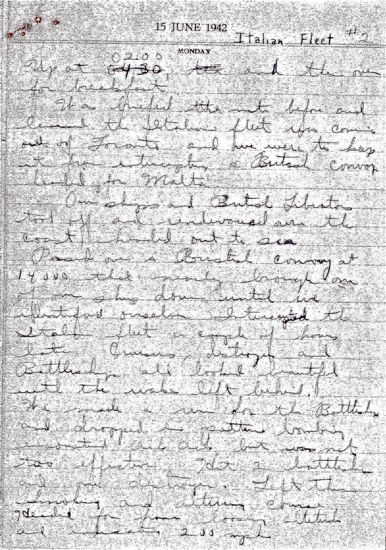 15 JUNE 1942
Italian Fleet #2
MONDAY
0200
Up at 0430 and the
for breakfast
the nite before and
learned the Italian fleet was coming
out of Toronto and we were to keep
it from intercepting a British convoy
headed for Malta
Our ships and British Liberators
took off and rendezvoused over the
coast headed out to sea
Passed over a British convoy at
14,000 that nearly brought one
of our ships down until we
identified ourselves intercepted the
Italian fleet a couple of hours
later Cruisers, destroyers and
Battleships all looked beautiful
until the wake left behind.
We made a run for the Battleships
and dropped in pattern bombing
but was not
too effective Hit 2 battleships
and one destroyer. Left them
smoking and altering course
Headed for home loosing altitude
and indicating 200 mph